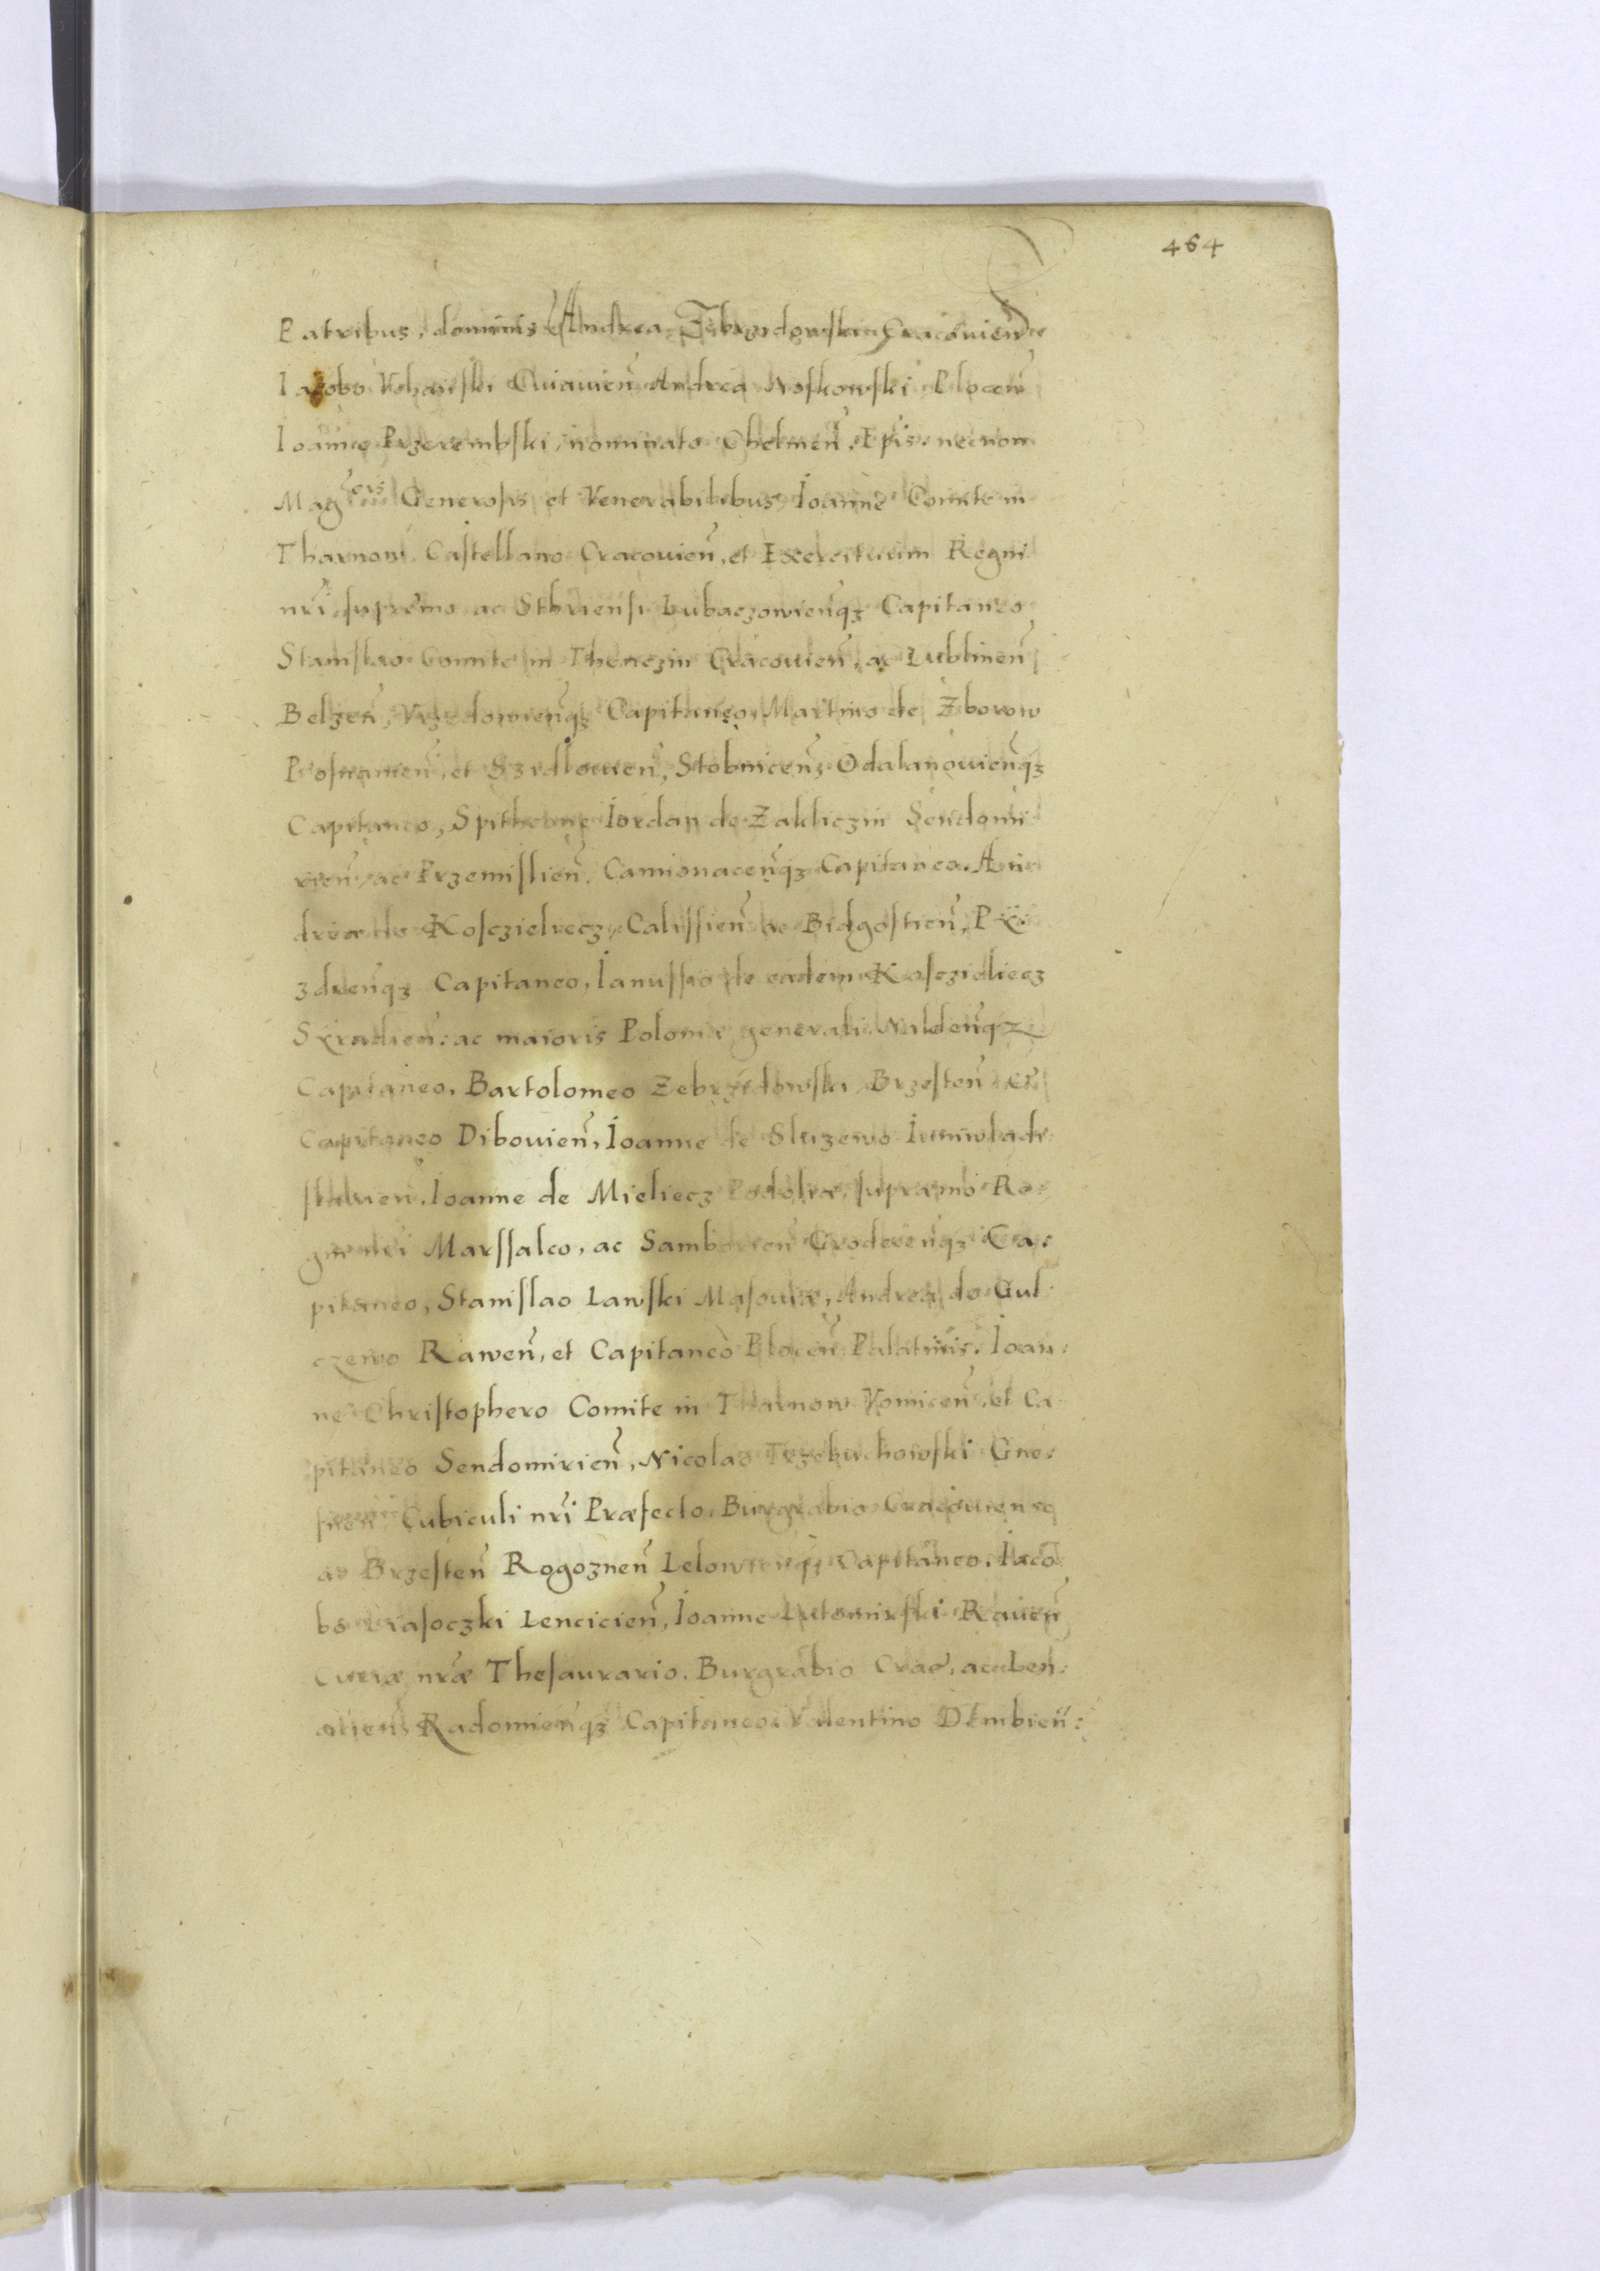 464
Patribus, dominis Andrea Zebrzidowski Cracovien̄
Iacobo Vchanski Cuiauien̄ Andrea Noskowski Plocen̄
Ioanne Przerembski, nominato Chelmen̄. Epis. necnon
Mag̅cis Generosis et Venerabilibus, Ioanne Comite in
Tharnow Castellano Cracouien̄, et Exercituum Regni
nr̄i supremo ac Striensi Lubaczowien̄qꝫ Capitaneo
Stanislao Comite in Thenczin Cracouien̄, ac Lublinen̄
Belzen̄, Vrzedowien̄qꝫ Capitaneo, Martino de Zborow
Posnanien̄, et Szydlouien̄, Stobnicen̄, Odalanouien̄qꝫ
Capitaneo, Spithone Iordan de Zakliczin Sendomi
rien̄, ac Przemislien̄. Camionacen̄qꝫ Capitaneo. An
drea de Kosczieliecz, Calissien̄ ac Bidgostien̄, Py
zdren̄qꝫ Capitaneo, Ianussio de eadem Kosczieliecz
Syradien̄: ac maioris Poloniæ generali Nakłen̄qꝫ
Capitaneo, Bartolomeo Zebrzidowski Brzesten̄ et
Capitaneo Dibouien̄, Ioanne de Sluzewo Iuniwladi
slauien̄. Ioanne de Mieliecz Podoliæ, supremo Re:
gni nr̄i Marssalco, ac Samborien̄ Grodecen̄qꝫ Ca:
pitaneo, Stanislao Lawski Masouiæ, Andrea de Gul
czewo Rawen̄, et Capitaneo Plocen̄ Palatinis. Ioan:
ne Christophero Comite in Tharnow Voinicen̄, et Ca
pitaneo Sendomirien̄, Nicolao Trzebuchowski Gne:
snen̄ Cubiculi nr̄i Præfecto, Burgrabio Cracouien̄
ac Brzesten̄ Rogoznen̄ Lelowien̄qꝫ Capitaneo. Iaco
bo Lasoczki Lencicien̄, Ioanne Lutomirski Rauen̄
Curiæ nr̄æ Thesaurario. Burgrabio Crac̄,
Radomien̄qꝫ Capitaneo. Valentino Dembien̄: